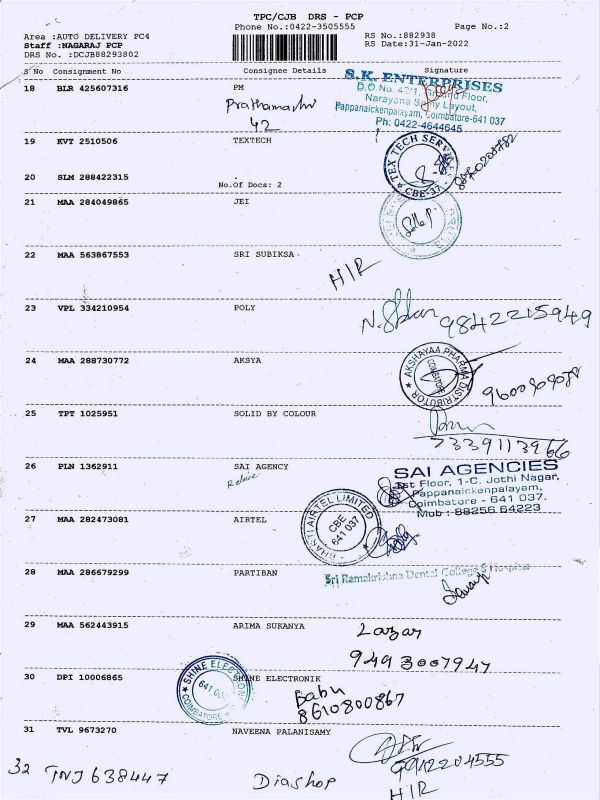 TPC/CJB DRS - PCP
Phone No.:0422-3505555
Page No.:2
Area :AUTO DELIVERY PC4
Staff :NAGARAJ PCP
DRS No. :DCJB88293802
RS No.:882938
RS Date:31-Jan-2022
S No Consignment No Consignee Details Signature
18 BLR 425607316 PM
42
S.K. ENTERPRISES
D.O No. 42/1, Ground Floor,
Narayana Samy Layout,
Pappanaickenpalayam, Coimbatore-641 037
Ph: 0422-4644645
19 KVT 2510506 TEXTECH
TEX TECH SERVICES
CBE-37
20 SLM 288422315 .
No.Of Docs: 2
21 MAA 284049865 JEI
22 MAA 563867553 SRI SUBIKSA
HIR
23 VPL 334210954 POLY
9842215949
24 MAA 288730772 AKSYA
AKSHAYAA PHARMA DISTRIBUTOR
COIMBATORE
25 TPT 1025951 SOLID BY COLOUR
7339113966
26 PLN 1362911 SAI AGENCY
SAI AGENCIES
1st Floor, 1-C. Jothi Nagar,
Pappanaickenpalayam,
Coimbatore - 641 037.
Mob : 88256 64223
27 MAA 282473081 AIRTEL
BHARTI AIRTEL LIMITED
CBE
641 037
28 MAA 286679299 PARTIBAN
Sri Ramakrishna Dental College & Hospital
29 MAA 562443915 ARIMA SUKANYA
Lazar
9493007947
30 DPI 10006865 SHINE ELECTRONIK
SHINE ELECTRONIK
641 037
COIMBATORE
Babu
8610800867
31 TVL 9673270 NAVEENA PALANISAMY
HIR
32 TNJ 638447 Diashop